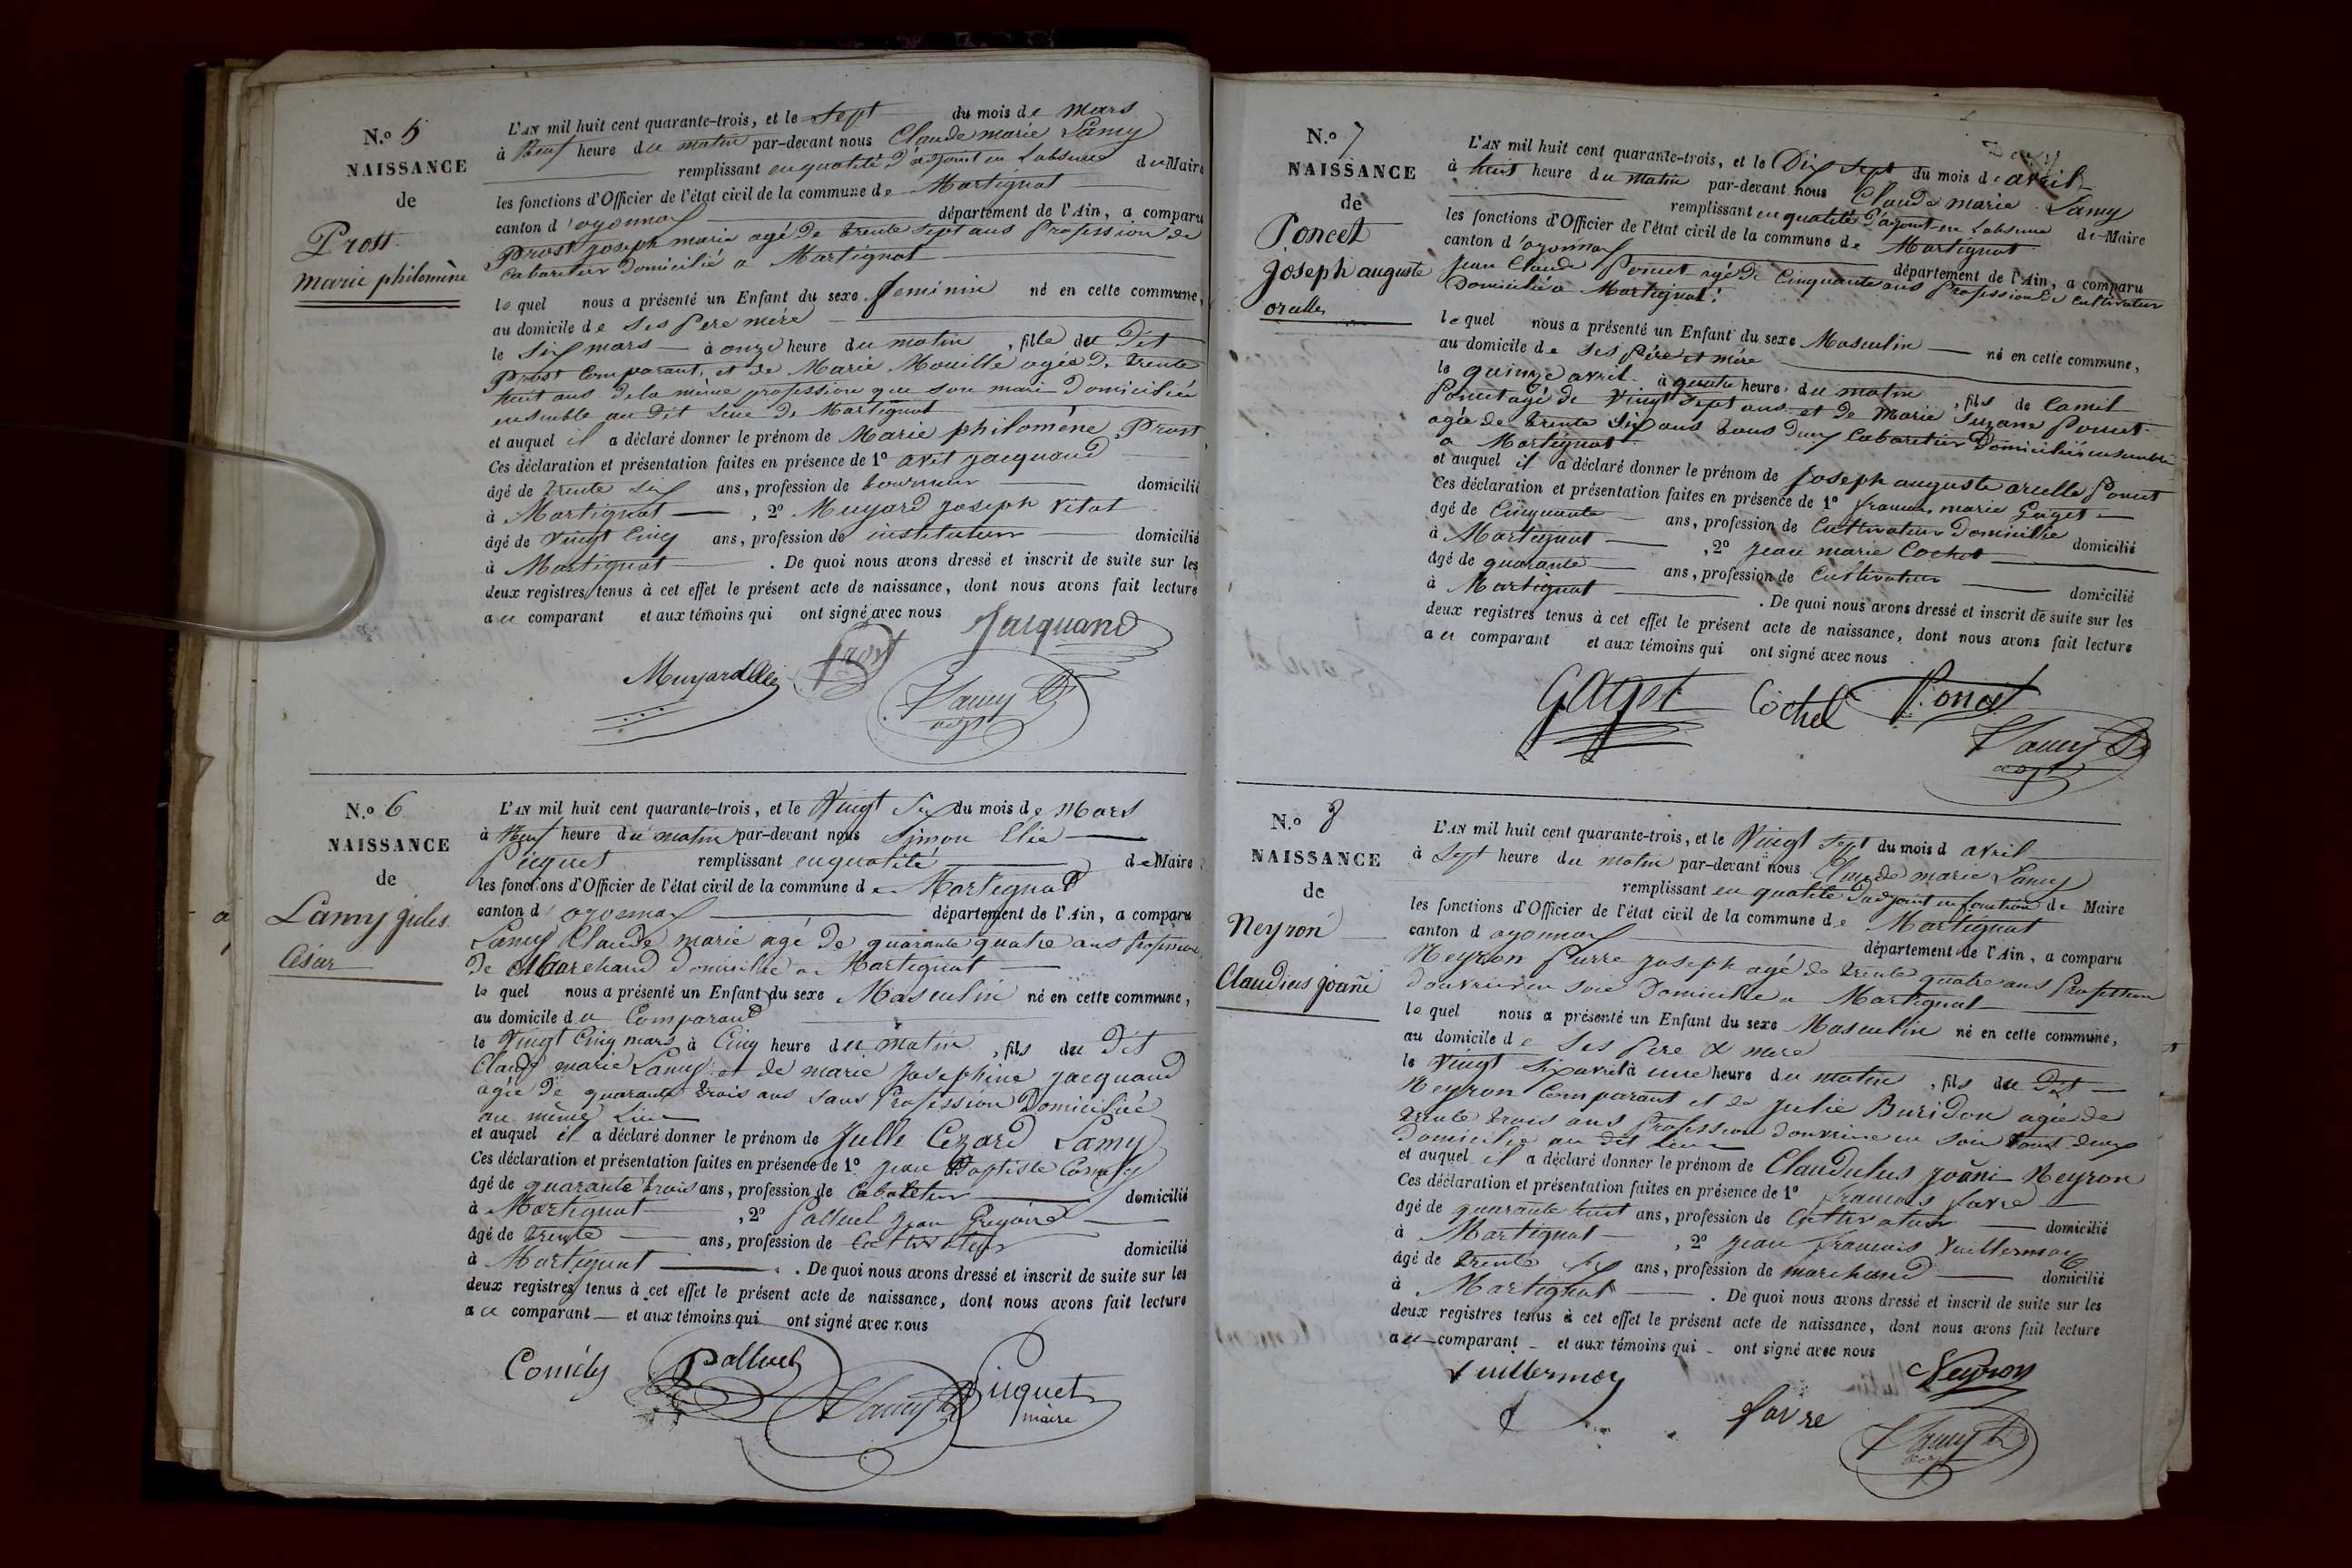 N.º 5
NAISSANCE
de
Prost
marie philomène
L'AN mil huit cent quarante-trois, et le Sept du mois de Mars
à Neuf heure du matin par-devant nous Claude marie Lamy
remplissant en qualité d'adjoint en L'absence du Maire
les fonctions d'Officier de l'état civil de la commune de Martignat
canton d'oyonnax département de l'Ain, a comparu
Prost joseph marie agé de trente sept ans Profession de
Cabaretier Domicilié a Martignat
le quel nous a présenté un Enfant du sexe feminin né en cette commune,
au domicile de ses Pere mère
le Six mars à onze heure du matin, fille du Dit
Prost Comparant, et de Marie Mouille agée de trente
huit ans de la même profession que son mari Domiciliée
ensemble au Dit Lieu de Martignat
et auquel il a déclaré donner le prénom de Marie philomène Prost
Ces déclaration et présentation faites en présence de 1º avit jacquand
âgé de trente Six ans, profession de tourneur domicilié
à Martignat, 2º Muyard joseph vital
âgé de vingt Cinq ans, profession de instituteur domicilié
à Martignat. De quoi nous avons dressé et inscrit de suite sur les
deux registres tenus à cet effet le présent acte de naissance, dont nous avons fait lecture
au comparant et aux témoins qui ont signé avec nous
Jacquand
Muyard Prost
Lamy
adjt
N.º 6
NAISSANCE
de
Lamy jules
César
L'AN mil huit cent quarante-trois, et le Vingt Six du mois de Mars
à Neuf heure du matin par-devant nous Simon Elie
Picquet remplissant en qualité de Maire
les fonctions d'Officier de l'état civil de la commune de Martignat
canton d'oyonnax département de l'Ain, a comparu
Lamy Claude marie agé de quarante quatre ans profession
de Marchand domicilié a Martignat
le quel nous a présenté un Enfant du sexe Masculin né en cette commune,
au domicile du Comparant
le Vingt Cinq mars à Cinq heure du matin, fils du Dit
Claude marie Lamy et de marie josephine jacquand
agée de quarante trois ans sans Profession Domiciliée
au même Lieu
et auquel il a déclaré donner le prénom de Julle Cezard Lamy
Ces déclaration et présentation faites en présence de 1º jean Baptiste Comdy
âgé de quarante trois ans, profession de Cabaretier domicilié
à Martignat, 2º Palluel jean Gregoire
âgé de trente ans, profession de Cultivateur domicilié
à Martignat. De quoi nous avons dressé et inscrit de suite sur les
deux registres tenus à cet effet le présent acte de naissance, dont nous avons fait lecture
au comparant et aux témoins qui ont signé avec nous
Comdy Palluel Lamy Picquet
maire
N.º 7
NAISSANCE
de
Poncet
Joseph auguste
orcelle
L'AN mil huit cent quarante-trois, et le Dix sept du mois de avril
à huit heure du matin par-devant nous Claude marie Lamy
remplissant en qualité d'adjoint en L'absence de Maire
les fonctions d'Officier de l'état civil de la commune de Martignat
canton d'oyonnax département de l'Ain, a comparu
Jean Claude Poncet agé de Cinquante ans Profession de Cultivateur
Domicilié a Martignat.
le quel nous a présenté un Enfant du sexe Masculin né en cette commune,
au domicile de ses Père et mère
le quinze avril à quatre heure du matin, fils de Camil
Poncet agé de vingt sept ans et de Marie Suzane Poncet
agée de trente Six ans tous Deux Cabaretier Domiciliés ensemble
a Martignat
et auquel il a déclaré donner le prénom de Joseph auguste arcelle Poncet
Ces déclaration et présentation faites en présence de 1º françois marie Gaget
âgé de Cinquante ans, profession de Cultivateur Domicilié domicilié
à Martignat, 2º jean marie Cochet
âgé de quarante ans, profession de Cultivateur domicilié
à Martignat. De quoi nous avons dressé et inscrit de suite sur les
deux registres tenus à cet effet le présent acte de naissance, dont nous avons fait lecture
au comparant et aux témoins qui ont signé avec nous
Gaget Cochet Poncet
Lamy
adjt
N.º 8
NAISSANCE
de
Neyron
Claudius joani
L'AN mil huit cent quarante-trois, et le Vingt Sept du mois d avril
à Sept heure du matin par-devant nous Claude marie Lamy
remplissant en qualité d'adjoint en fonction de Maire
les fonctions d'Officier de l'état civil de la commune de Martignat
canton d oyonnax département de l'Ain, a comparu
Neyron Pierre joseph agé de trente quatre ans Profession
d'ouvrier en soie Domicilié a Martignat
le quel nous a présenté un Enfant du sexe Masculin né en cette commune,
au domicile de ses Pere & mere
le Vingt Six avril à une heure du matin, fils du Dit
Neyron Comparant et de Julie Buridon agée de
trente trois ans Profession d'ouvrière en soie tous deux
Domicilie au dit lieu
et auquel il a déclaré donner le prénom de Claudulus joani Neyron
Ces déclaration et présentation faites en présence de 1º francois favre
âgé de quarante huit ans, profession de Cultivateur domicilié
à Martignat, 2º jean francois Vuillermoz
âgé de trente Six ans, profession de marchand domicilié
à Martignat. De quoi nous avons dressé et inscrit de suite sur les
deux registres tenus à cet effet le présent acte de naissance, dont nous avons fait lecture
au comparant et aux témoins qui ont signé avec nous
Vuillermoz Neyron
favre
Lamy